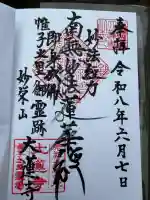 奉拝
令和八年二月七日
妙法経力
南無妙法蓮華経
即身成佛
帷子里御霊跡
妙栄山
大蓮寺